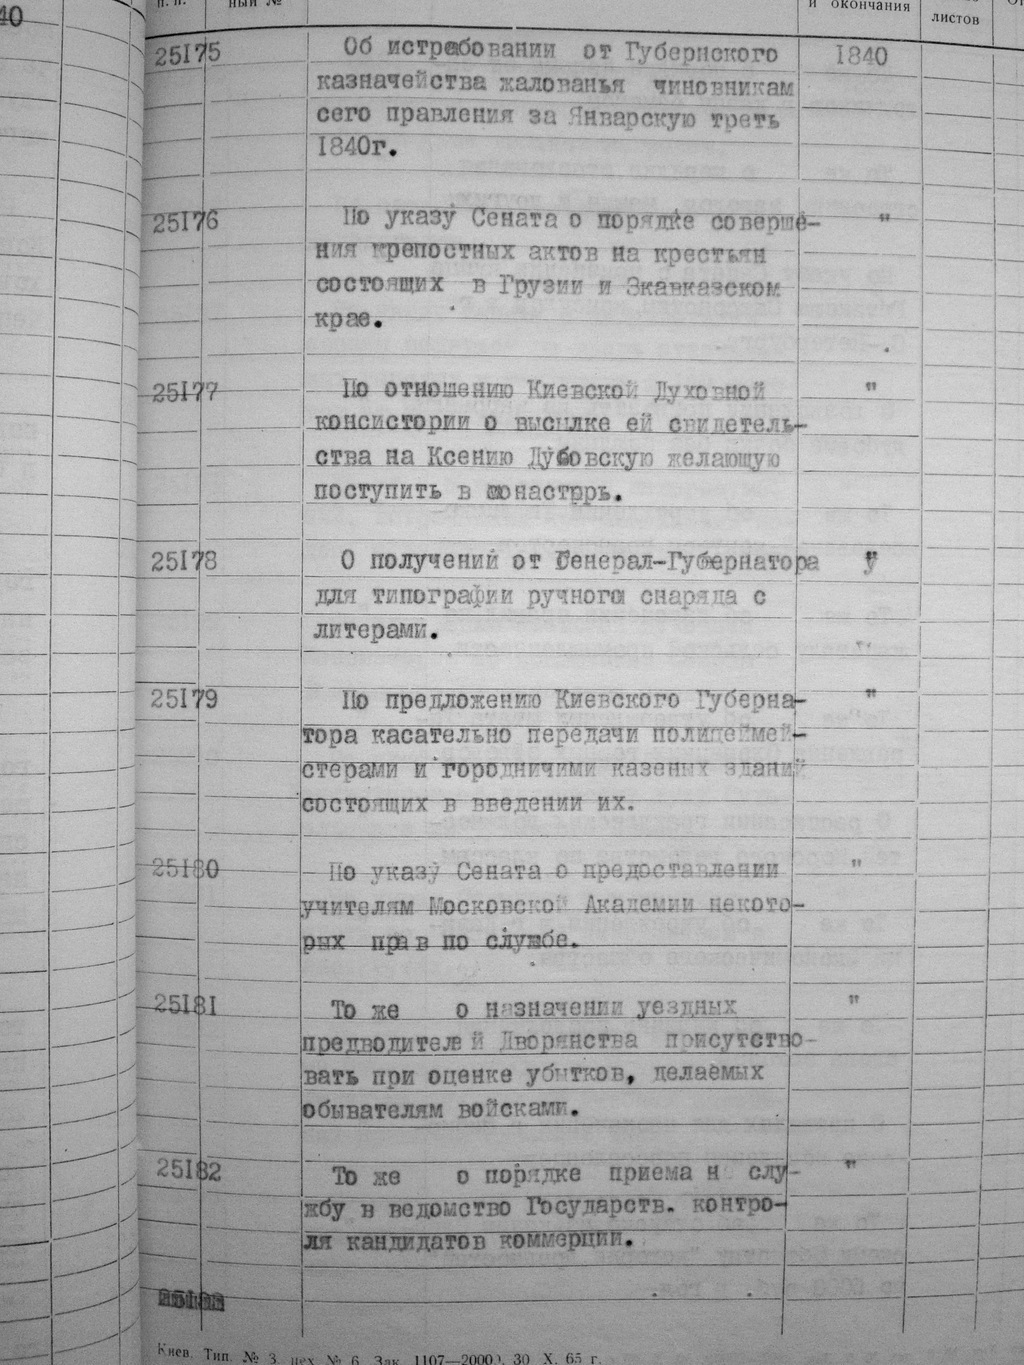 40
п. п.
ный №
и окончания
листов
25175 Об истребовании от Губернского 1840
казначейства жалованья чиновникам
сего правления за Январскую треть
1840г.
25176 По указу Сената о порядке соверше- "
ния крепостных актов на крестьян
состоящих в Грузии и Зкавказском
крае.
25177 По отношению Киевской Духовной "
консистории о высылке ей свидетель-
ства на Ксению Дубовскую желающую
поступить в монастрь.
25178 О получений от Генерал-Губернатора "
для типографии ручного снаряда с
литерами.
25179 По предложению Киевского Губерна- "
тора касательно передачи полицеймей-
стерами и городничими казеных зданий
состоящих в введении их.
25180 По указу Сената о предоставлении "
учителям Московской Академии некото-
рых прав по службе.
25181 То же о назначении уездных "
предводителей Дворянства присутство-
вать при оценке убытков, делаемых
обывателям войсками.
25182 То же о порядке приема н слу- "
жбу в ведомство Государств. контро-
ля кандидатов коммерции.
Киев. Тип. № 3, цех № 6. Зак. 1107—2000. 30 X. 65 г.